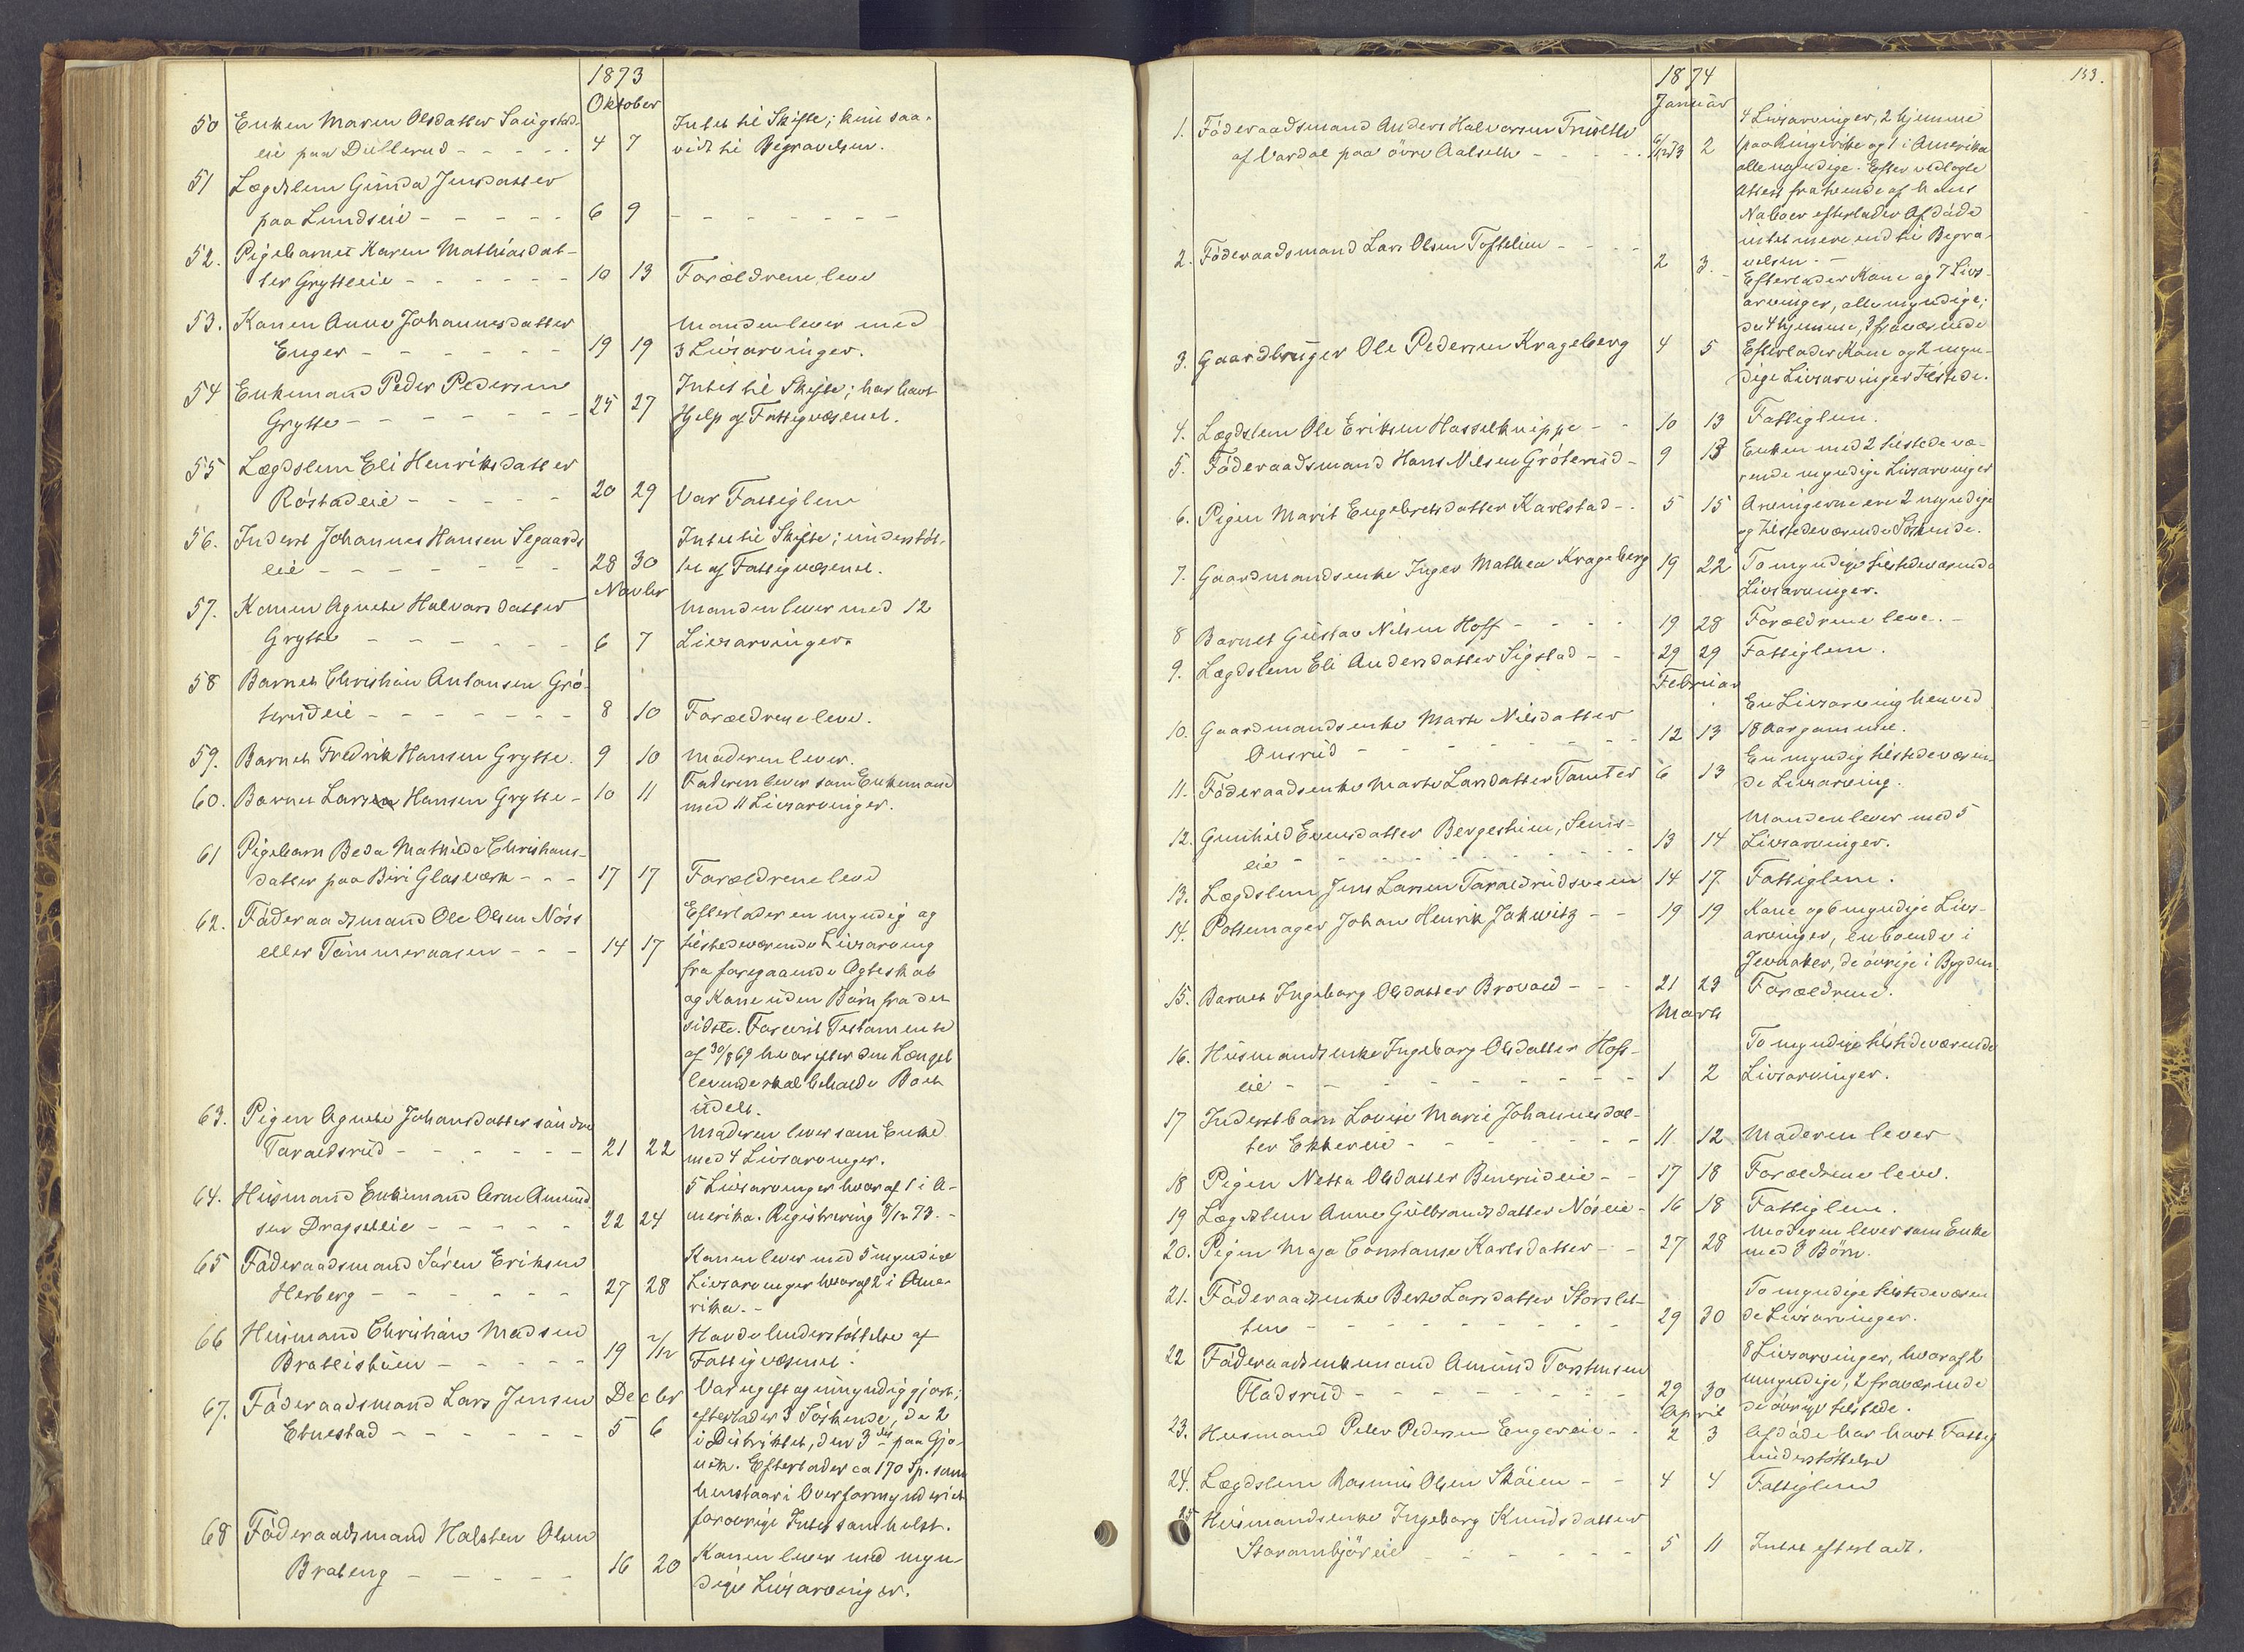 1873
Oktober
50 Enken Maren Olsdatter Saugstad-
eie paa Dullerud - - - - - 4 7
Intet til Skifte; kun saa-
vidt til Begravelsen.
51 Lægdslem Gunda Jensdatter
paa Lundseie - - - - - 6 9 - - - - - - -
52. Pigebarnet Karen Mathiasdat-
ter Grytteeie - - - - - - 10 13 Forældrene leve
53. Konen Anne Johannesdatter
Enger - - - - - - 19 19
Manden lever med
3 Livsarvinger.
54 Enkemand Peder Pedersen
Grytte - - - - - - - 25 27
Intet til Skifte; har havt
Hjelp af Fattigvæsenet.
55 Lægdslem Eli Henriksdatter
Röstadeie - - - - - 20 29 Var Fattiglem
56. Inderst Johannes Hansen Segaards
eie - - - - - - - 28 30
Intet til Skifte; understöt-
tet af Fattigvæsenet.
Novbr
57. Konen Agnethe Halvorsdatter
Grytte - - - - - - 6 7
Manden lever med 12
Livsarvinger.
58 Barnet Christian Antonsen Grö-
terudeie - - - - - - - 8 10 Forældrene leve.
59. Barnet Fredrik Hansen Grytte. 9 10 Moderen lever.
60. Barnet Lars Hansen Grytte - 10 11
Faderen lever som Enkemand
med 11 Livsarvinger.
61 Pigebarn Beda Mathilde Christians-
datter paa Biri Glasværk - - - 17 17 Forældrene leve
62. Föderaadsmand Ole Olsen Nöss
eller Tömmeraasen - - - 14 17
Efterlader en myndig og
tilstedeværende Livsarving
fra foregaaende Ægteskab
og Kone uden Börn fra det
sidste. Foreviist Testamente
af 30/8 69 hvorefter den Længst
levende skal beholde Boet
udelt.
63. Pigen Agnethe Johansdatter söndre
Taraldsrud - - - - - - 21 22
Moderen lever som Enke
med 4 Livsarvinger.
64. Husmand Enkemand Arne Amund
sen Dragseteie - - - - - 22 24
5 Livsarvinger hvoraf 1 i A-
merika. Registrering 8/12 73. -
65 Föderaadsmand Sören Eriksen
Herberg - - - - - - 27 28
Konen lever med 5 myndige
Livsarvinger hvoraf 2 i Ame-
rika. -
66 Husmand Christian Madsen
Bratlistuen - - - - - 19 2/12
Havde Understöttelse af
Fattigvæsenet.
Decbr
67. Föderaadsmand Lars Jensen
Ebnestad - - - - - - 5 6
Var ugift og umyndiggjort;
efterlader 3 Söskende, de 2
i Distriktet, den 3die paa Gjö-
vik. Efterlader ca 170 Sp. som
henstaar i Overformynderiet
forövrigt Intet somhelst.
68 Föderaadsmand Halsten Olsen
Brateng - - - - - 16 20
Konen lever med myn-
dige Livsarvinger.
153.
1874
Januar
1. Föderaadsmand Anders Halvorsen
af Vardal paa övre Aalseth - - - - 2
4 Livsarvinger, 2 hjemme
1 paa Ringerike og 1 i Amerika
alle myndige. Efter vedlagte
Attest fra tvende af hans
Naboer efterlader Afdöde
intet mere end til Begra-
velsen. -
2. Föderaadsmand Lars Olsen Toftelien - - - - 2 3.
Efterlader Kone og 7 Livs-
arvinger, alle myndige;
de 4 hjemme, 3 fraværende
3. Gaardbruger Ole Pedersen Krageberg 4 5
Efterlader Kone og 2 myn-
dige Livsarvinger tilstede.
4. Lægdslem Ole Eriksen Hasselknippe - - 10 13 Fattiglem.
5. Föderaadsmand Hans Nilsen Gröterud - 9 13
Enken med 2 tilstedevæ-
rende myndige Livsarvinger
6. Pigen Marit Engebretsdatter Karlstad - - 5 15
Arvingerne ere 2 myndige
og tilstedeværende Söskende.
7. Gaardmandsenke Inger Mathea Krageberg 19 22
To myndige tilstedeværende
Livsarvinger.
8 Barnet Gustav Nilsen Hoff - - - - 19 28 Forældrene leve. -
9. Lægdslem Eli Andersdatter Sigstad - - 29 29 Fattiglem.
Februar
10. Gaardmandsenke Marte Nilsdatter
Onsrud - - - - - - - 12 13
En Livsarving henved
18 Aar gammel.
11. Föderaadsenke Marte Larsdatter Tomter 6 13
En myndig tilstedeværen-
de Livsarving.
12. Gunhild Evensdatter Bergestuen, Seniv-
eie - - - - - - - - 13 14
Manden lever med 5
Livsarvinger.
13. Lægdslem Jens Larsen Taraldrudsveen 14 17. Fattiglem.
14. Pottemager Johan Henrik Jakwitz - - 19 19
Kone og 6 myndige Livs-
arvinger, en boende i
Jevnaker, de övrige i Bygden.
15. Barnet Ingeborg Olsdatter Brovold - - - 21 23 Forældrene.
Marts
16. Husmandsenke Ingeborg Olsdatter Hoff-
eie - - - - - - - - - 1 2
To myndige tilstedeværende
Livsarvinger.
17 Inderstbarn Lovise Marie Johannesdat-
ter Ekkereie - - - - - - 11 12 Moderen lever
18 Pigen Netta Olsdatter Benerudeie - - 17 18 Forældrene leve.
19 Lægdslem Anne Gulbrandsdatter Nöseie - 16 18 Fattiglem.
20. Pigen Maja Constanse Karlsdatter - - 27 28
Moderen lever som Enke
med 3 Börn.
21. Föderaadsenke Berte Larsdatter Storslet-
ten - - - - - - - - 29 30
To myndige tilstedeværen
de Livsarvinger.
22 Föderaadsenkemand Amund Torstensen
Fladsrud - - - - - - - 29 30
8 Livsarvinger, hvoraf 2
umyndige, 2 fraværende
de övrige tilstede.
April
23. Husmand Peder Pedersen Engereie - - 2 3
Afdöde har havt Fattig
understöttelse
24. Lægdslem Rasmus Olsen Sköien - - 4 4 Fattiglem
25 Husmandsenke Ingeborg Knudsdatter
Storambjöreie - - - - - 5 11 Intet efterladt.